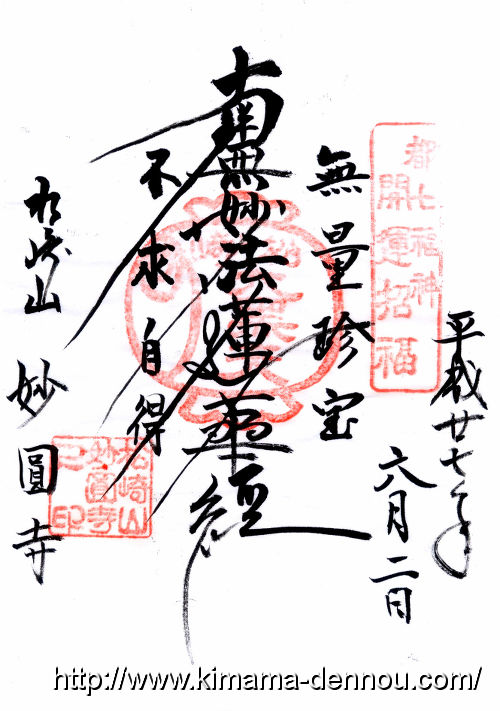 都七福神
開運招福
平成廿七年
六月二日
無量珍宝
南無妙法蓮華経
不求自得
松崎山
妙圓寺
松崎山
妙圓寺
之印
http://www.kimama-dennou.com/